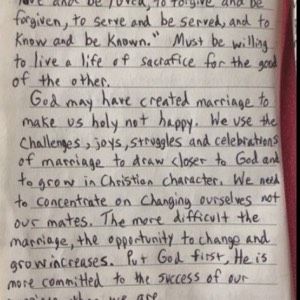 love and be loved, to forgive and be
forgiven, to serve and be served, and to
know and be known." Must be willing
to live a life of sacrafice for the good
of the other.
God may have created marriage to
make us holy not happy. We use the
challenges, joys, struggles and celebrations
of marriage to draw closer to God and
to grow in Christian character. We need
to concentrate on changing ourselves not
our mates. The more difficult the
marriage, the opportunity to change and
grow increases. Put God first, He is
more committed to the success of our
marriage than we are